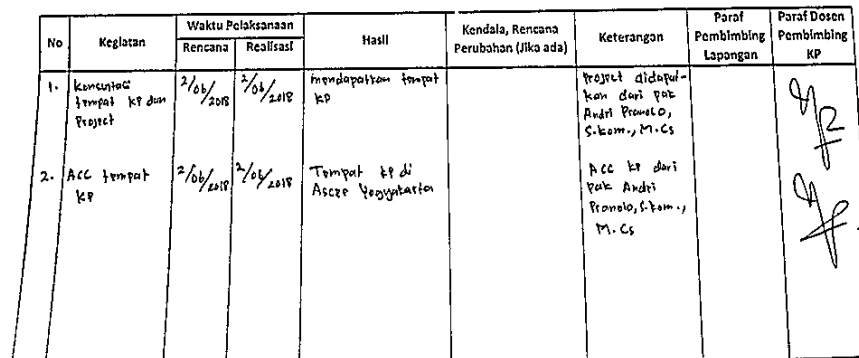 No
Kegiatan
Waktu Pelaksanaan
Rencana
Realisasi
Hasil
Kendala, Rencana
Perubahan (Jika ada)
Keterangan
Paraf
Pembimbing
Lapangan
Paraf Dosen
Pembimbing
KP
1.
Konsultasi
tempat KP dan
Project
2/06/2018
2/06/2018
mendapatkan tempat
KP
Project didapat-
kan dari pak
Andri Pranolo,
S.kom., M.Cs
2.
ACC tempat
KP
2/06/2018
2/06/2018
Tempat KP di
Ascee Yogyakarta
ACC KP dari
Pak Andri
Pranolo, S.kom.,
M.Cs